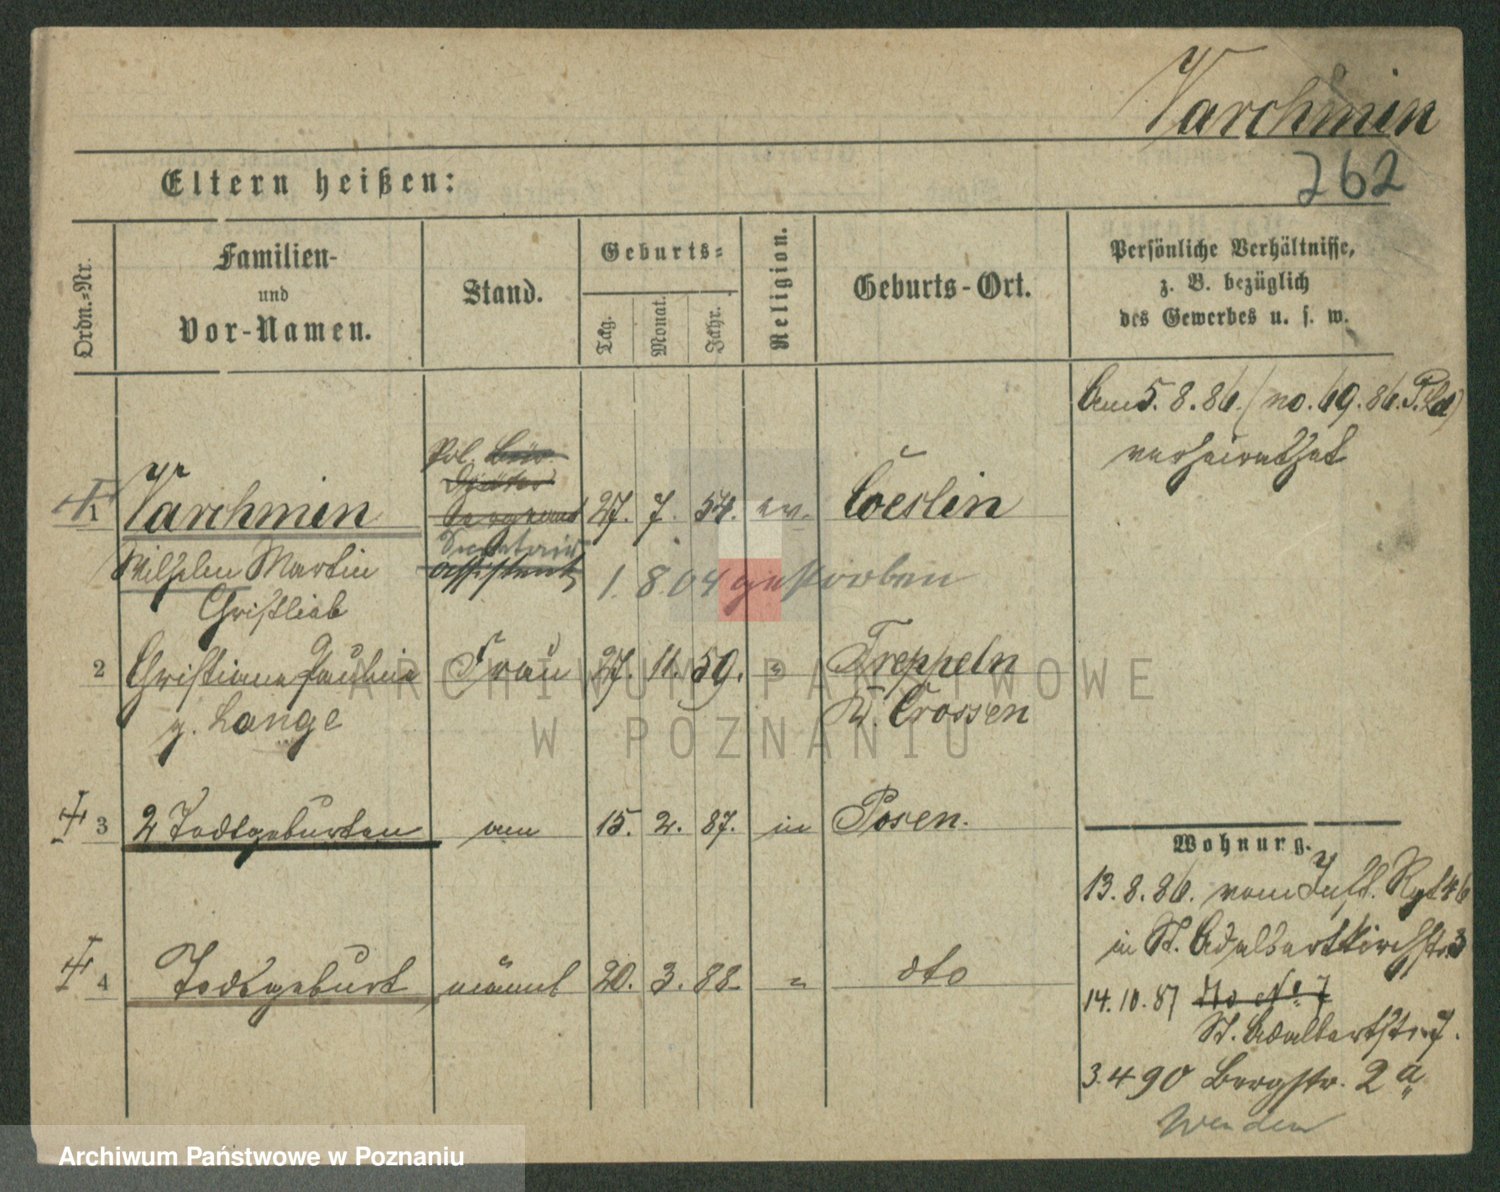 Varchmin
262
Eltern heißen:
Ordn.=Nr.
Familien-
und
Vor-Namen.
Stand.
Geburts=
Tag.
Monat.
Jahr.
Religion.
Geburts-Ort.
Persönliche Verhältnisse,
z. B. bezüglich
des Gewerbes u. s. w.
Am 5. 8. 86. (no. 69. 86. P.
verheirathet
1 Varchmin
Wilhelm Martin
Christlieb
Pol.
Sergeant
Secretair
Assistent
27. 7. 54. ev. Coeslin
1. 8 04 gestorben
2 Christiane Pauline Frau 27. 11. 59. " Treppeln
g. Lange
K. Crossen
3 2 Todtgeburten am 15. 2. 87. in Posen.
4 Todtgeburt männl 20. 3. 88. " dto
Wohnung.
13. 8. 86. vom Inft. Rgt 46
in St. Adalbertkirchstr. 3
14. 10. 87 dto No 7
St. Adalbertstr. 7.
3. 4 90 Bergstr. 2 a
Wenden
ARCHIWUM PAŃSTWOWE
W POZNANIU
Archiwum Państwowe w Poznaniu